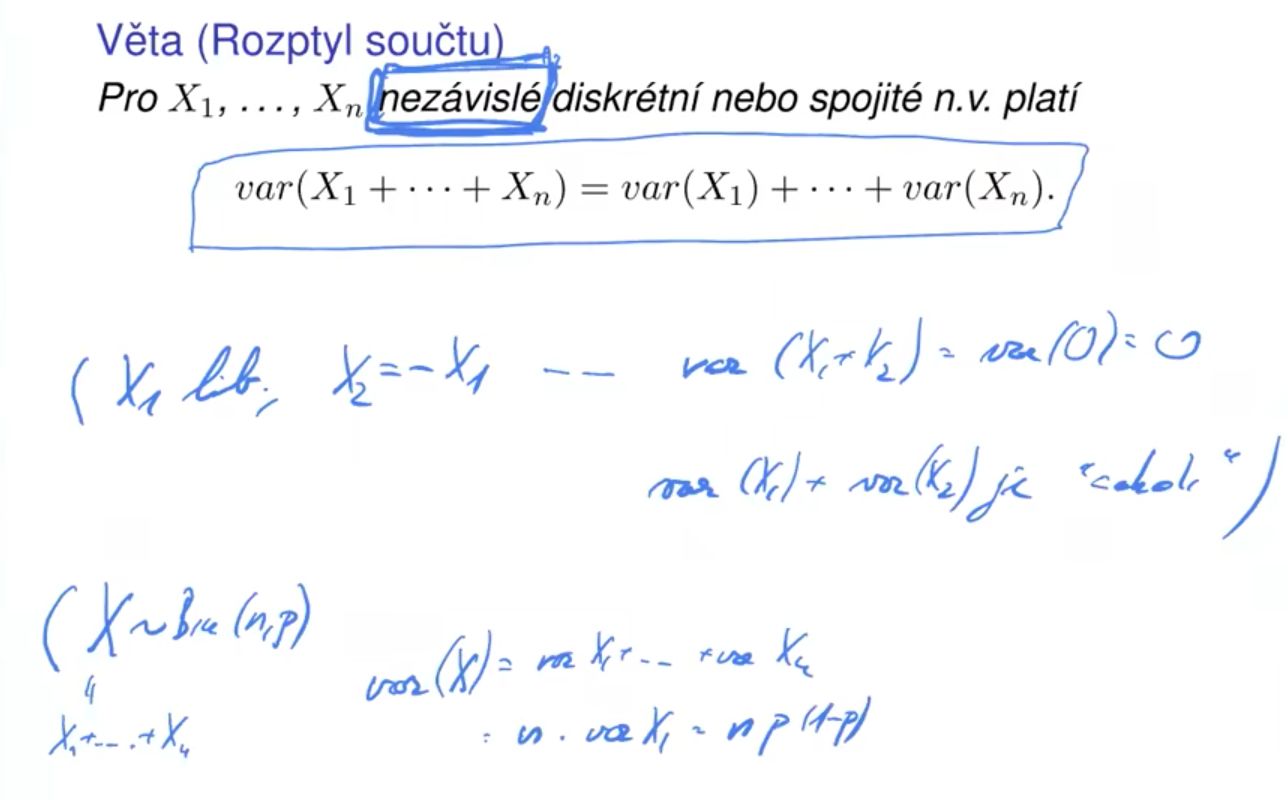 Věta (Rozptyl součtu)
Pro X₁, …, Xₙ nezávislé diskrétní nebo spojité n.v. platí
var(X₁ + ⋯ + Xₙ) = var(X₁) + ⋯ + var(Xₙ).
( X₁ lib, X₂ = -X₁ -- var (X₁+X₂) = var(0) = 0
var (X₁) + var(X₂) je "cokoli" )
( X ~ Bin (n,p)
var(X) = var X₁ + -- + var Xₙ
X₁ + --- + Xₙ
= n . var X₁ = n p (1-p)